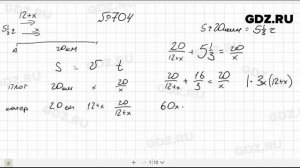 №704
GDZ.RU
12+x
5⅓ г
A
20км
S = v t
плот 20км x 20/x
катер 20км 12+x 20/12+x
5ч20мин = 5⅓ г
20/12+x + 5⅓ = 20/x
20/12+x + 16/3 = 20/x | · 3x(12+x)
60x